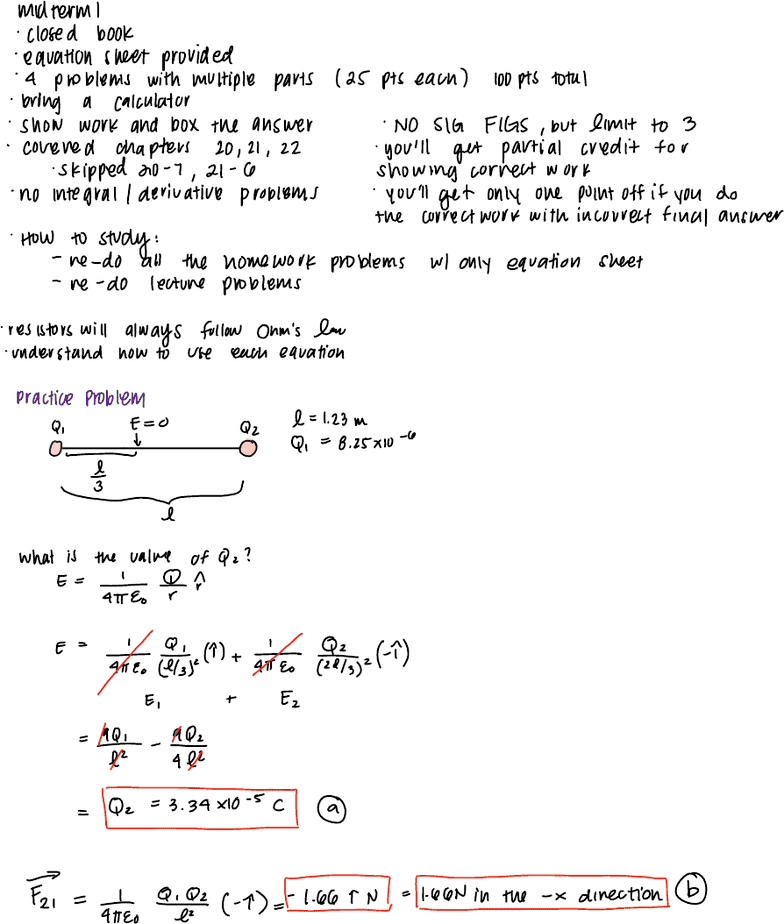 midterm 1
· closed book
· equation sheet provided
· 4 problems with multiple parts (25 pts each) 100 pts total
· bring a calculator
· show work and box the answer
· covered chapters 20, 21, 22
· skipped 20-7, 21-6
· no integral / derivative problems
· NO SIG FIGS, but limit to 3
· you'll get partial credit for
showing correct work
· you'll get only one point off if you do
the correct work with incorrect final answer
· How to study:
- re-do all the homework problems w/ only equation sheet
- re-do lecture problems
· resistors will always follow Ohm's law
· understand how to use each equation
Practice Problem
Q₁ E=0 Q₂
l/3
l
l = 1.23 m
Q₁ = 8.25×10⁻⁶
what is the value of Q₂?
E = 1/(4πε₀) Q/r r̂
E = 1/(4πε₀) Q₁/(l/3)² (î) + 1/(4πε₀) Q₂/(2l/3)² (-î)
E₁ + E₂
= 9Q₁/l² - 9Q₂/4l²
= Q₂ = 3.34×10⁻⁵ C (a)
F₂₁ = 1/(4πε₀) Q₁Q₂/l² (-î) = -1.66 î N = 1.66N in the -x direction (b)